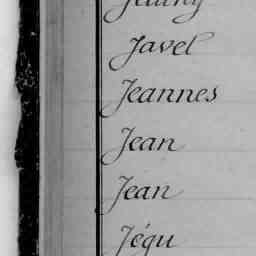 Javel
Jeannes
Jean
Jean
Jégu